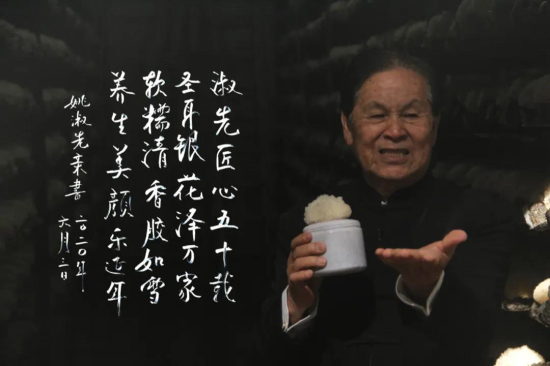 淑先匠心五十载
圣耳银花泽万家
软糯清香胶如雪
养生美颜乐延年
姚淑先亲書
二〇二〇年
六月三日